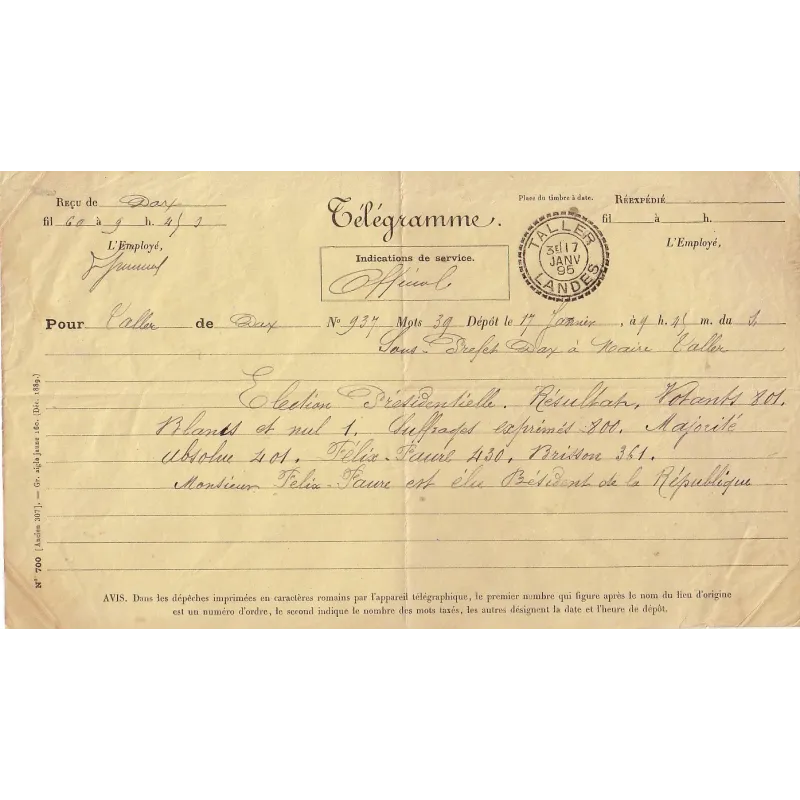 Reçu de Dax
fil 60 à 9 h. 45 s
L'Employé,
Télégramme.
Indications de service.
Officiel
Place du timbre à date.
TALLER
3E 17
JANV
95
LANDES
Réexpédié
fil à h.
L'Employé,
Pour Taller de Dax N° 937 Mots 39 Dépôt le 17 Janvier, à 9 h. 45 m. du s.
Sous-Préfet Dax à Maire Taller
Election Présidentielle. Résultat. Votants 801.
Blancs et nul 1. Suffrages exprimés 800. Majorité
absolue 401. Félix-Faure 430. Brisson 361.
Monsieur Felix-Faure est élu Président de la République
N° 700 [Ancien 307]. — Gr. aigle jaune 16c. (Déc. 1889.)
AVIS. Dans les dépêches imprimées en caractères romains par l'appareil télégraphique, le premier nombre qui figure après le nom du lieu d'origine
est un numéro d'ordre, le second indique le nombre des mots taxés, les autres désignent la date et l'heure de dépôt.